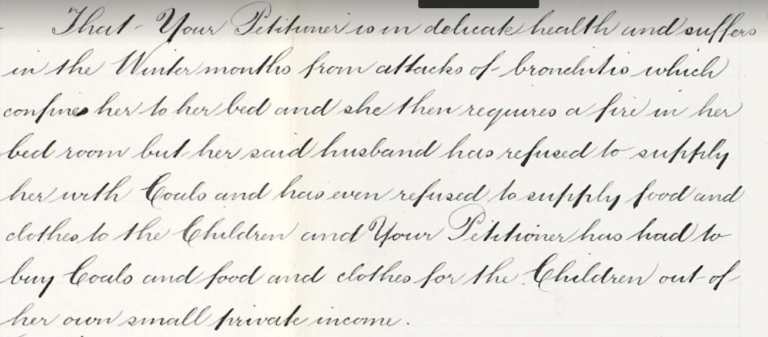 That Your Petitioner is in delicate health and suffers
in the Winter months from attacks of bronchitis which
confines her to her bed and she then requires a fire in her
bed room but her said husband has refused to supply
her with Coals and has even refused to supply food and
clothes to the Children and Your Petitioner has had to
buy Coals and food and clothes for the Children out of
her own small private income.